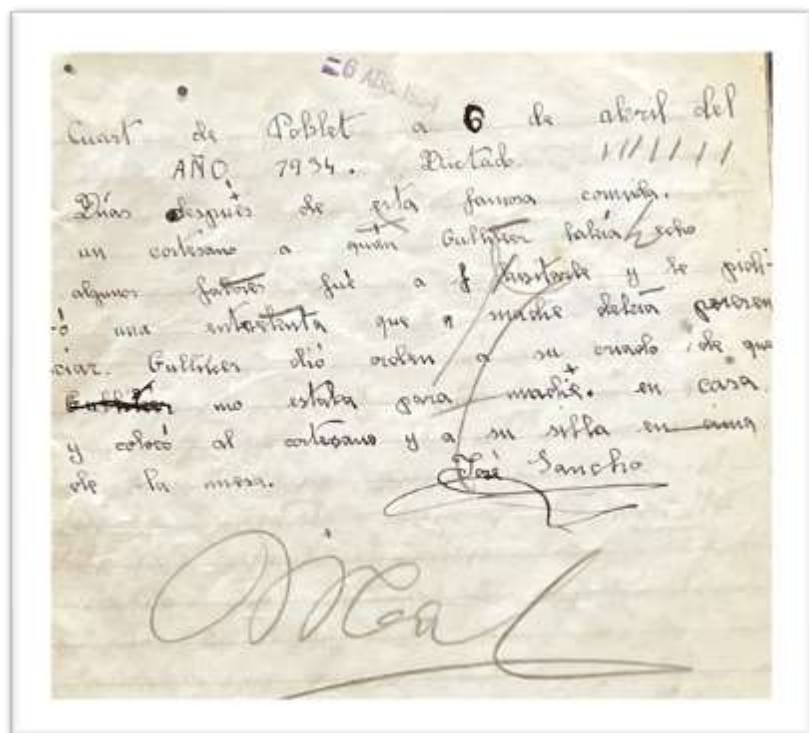 =6 ABR. 1934
Cuart de Poblet a 6 de abril del
AÑO 1934. Dictado.
Días después de esta famosa comida.
un cortesano a quién Gulliver había echo
algunos favores fué a visitarle y le pidi-
ó una entrevista que nadie debía presen
ciar. Gulliver dió orden a su criado de que
Gulliver no estaba para nadie. en casa.
y colocó al cortesano y a su silla en cima
de la mesa.
José Sancho
Mal